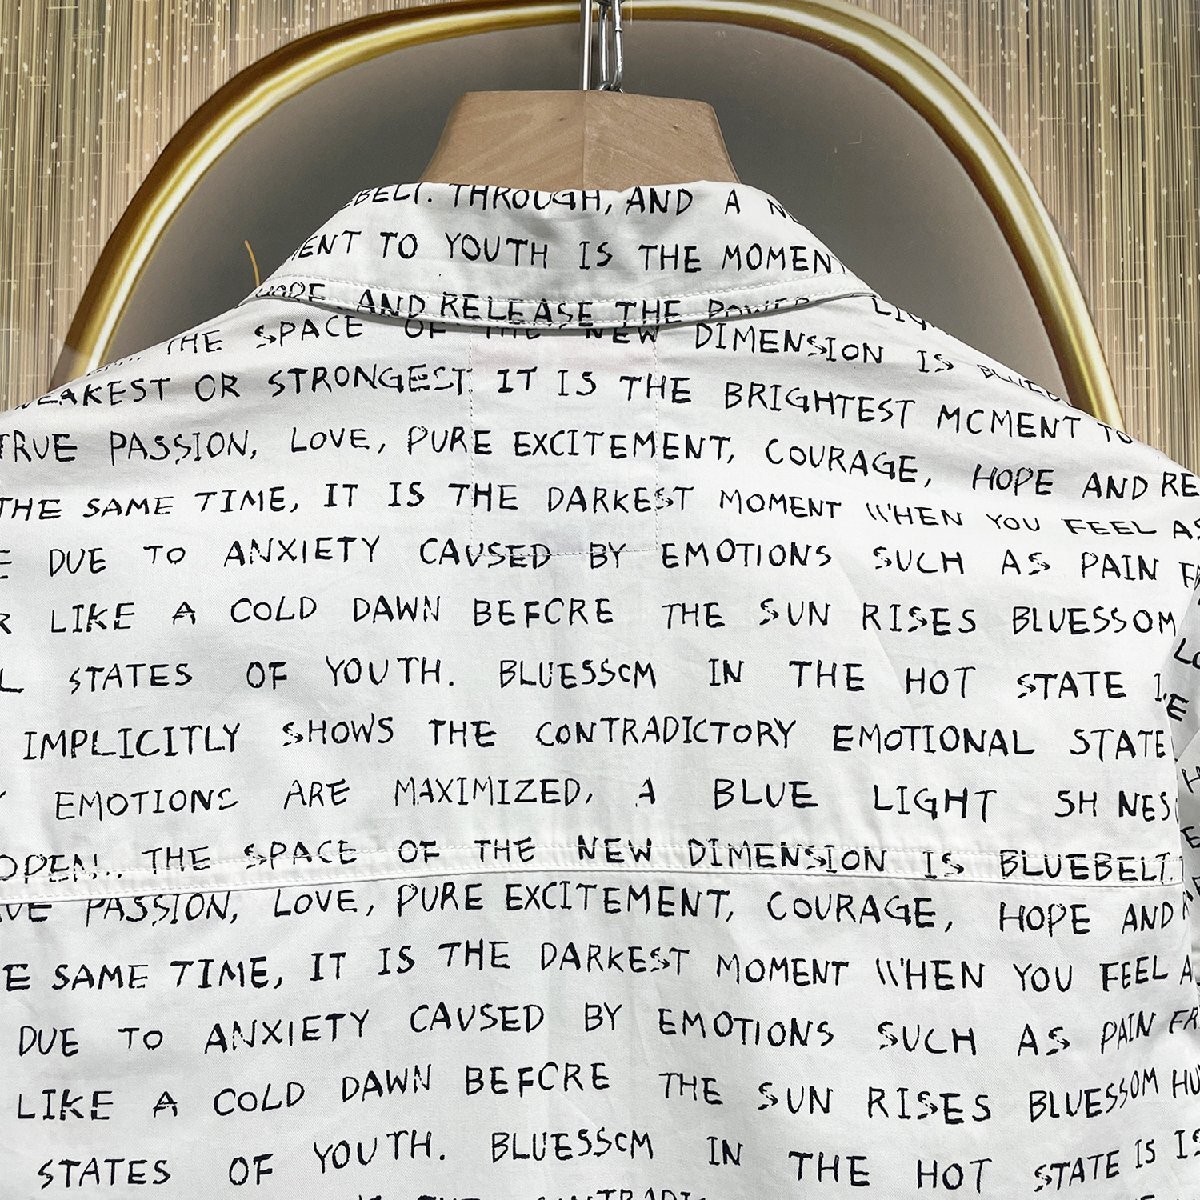 THROUGH, AND A
TO YOUTH IS THE MOMENT
AND RELEASE THE POWER
THE SPACE OF THE NEW DIMENSION IS
WEAKEST OR STRONGEST IT IS THE BRIGHTEST MCMENT TO
TRUE PASSION, LOVE, PURE EXCITEMENT, COURAGE, HOPE AND RE
THE SAME TIME, IT IS THE DARKEST MOMENT WHEN YOU FEEL AS
E DUE TO ANXIETY CAUSED BY EMOTIONS SUCH AS PAIN
R LIKE A COLD DAWN BEFCRE THE SUN RISES BLUESSOM
L STATES OF YOUTH. BLUESSCM IN THE HOT STATE
IMPLICITLY SHOWS THE CONTRADICTORY EMOTIONAL STATE
EMOTIONS ARE MAXIMIZED, A BLUE LIGHT SH NES
OPEN!.. THE SPACE OF THE NEW DIMENSION IS BLUEBELT.
PASSION, LOVE, PURE EXCITEMENT, COURAGE, HOPE AND
E SAME TIME, IT IS THE DARKEST MOMENT WHEN YOU FEEL A
DUE TO ANXIETY CAUSED BY EMOTIONS SUCH AS PAIN
LIKE A COLD DAWN BEFCRE THE SUN RISES BLUESSOM HU
STATES OF YOUTH. BLUESSCM IN THE HOT STATE IS IS